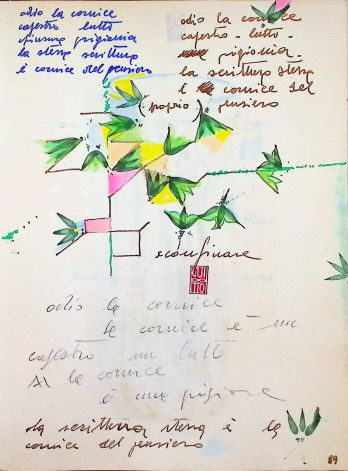 odio la cornice
capestro lutto
chiusura prigionia
la stessa scrittura
è cornice del pensiero
odio la cornice
capestro - lutto -
prigionia -
la scrittura stessa
è cornice del
pensiero
(proprio)
sconfinare
odio la cornice
la cornice è un
capestro un lutto
la cornice
è una prigione
la scrittura stessa è la
cornice del pensiero
89